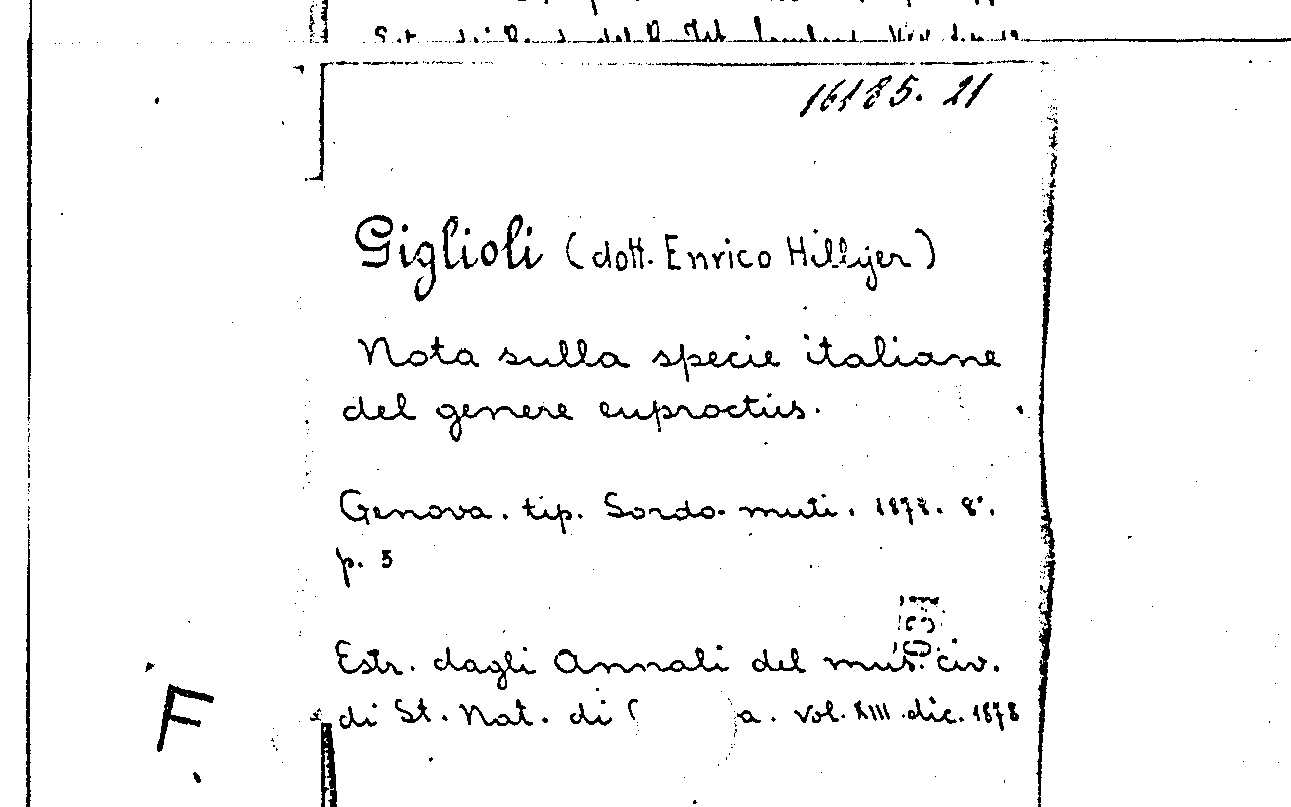 16185. 21
Giglioli (dott. Enrico Hillyer)
Nota sulla specie italiane
del genere euproctus.
Genova. tip. Sordo-muti. 1878. 8°.
p. 5
Estr. dagli Annali del mus. civ.
di St. Nat. di a. vol. XIII dic. 1878
F.